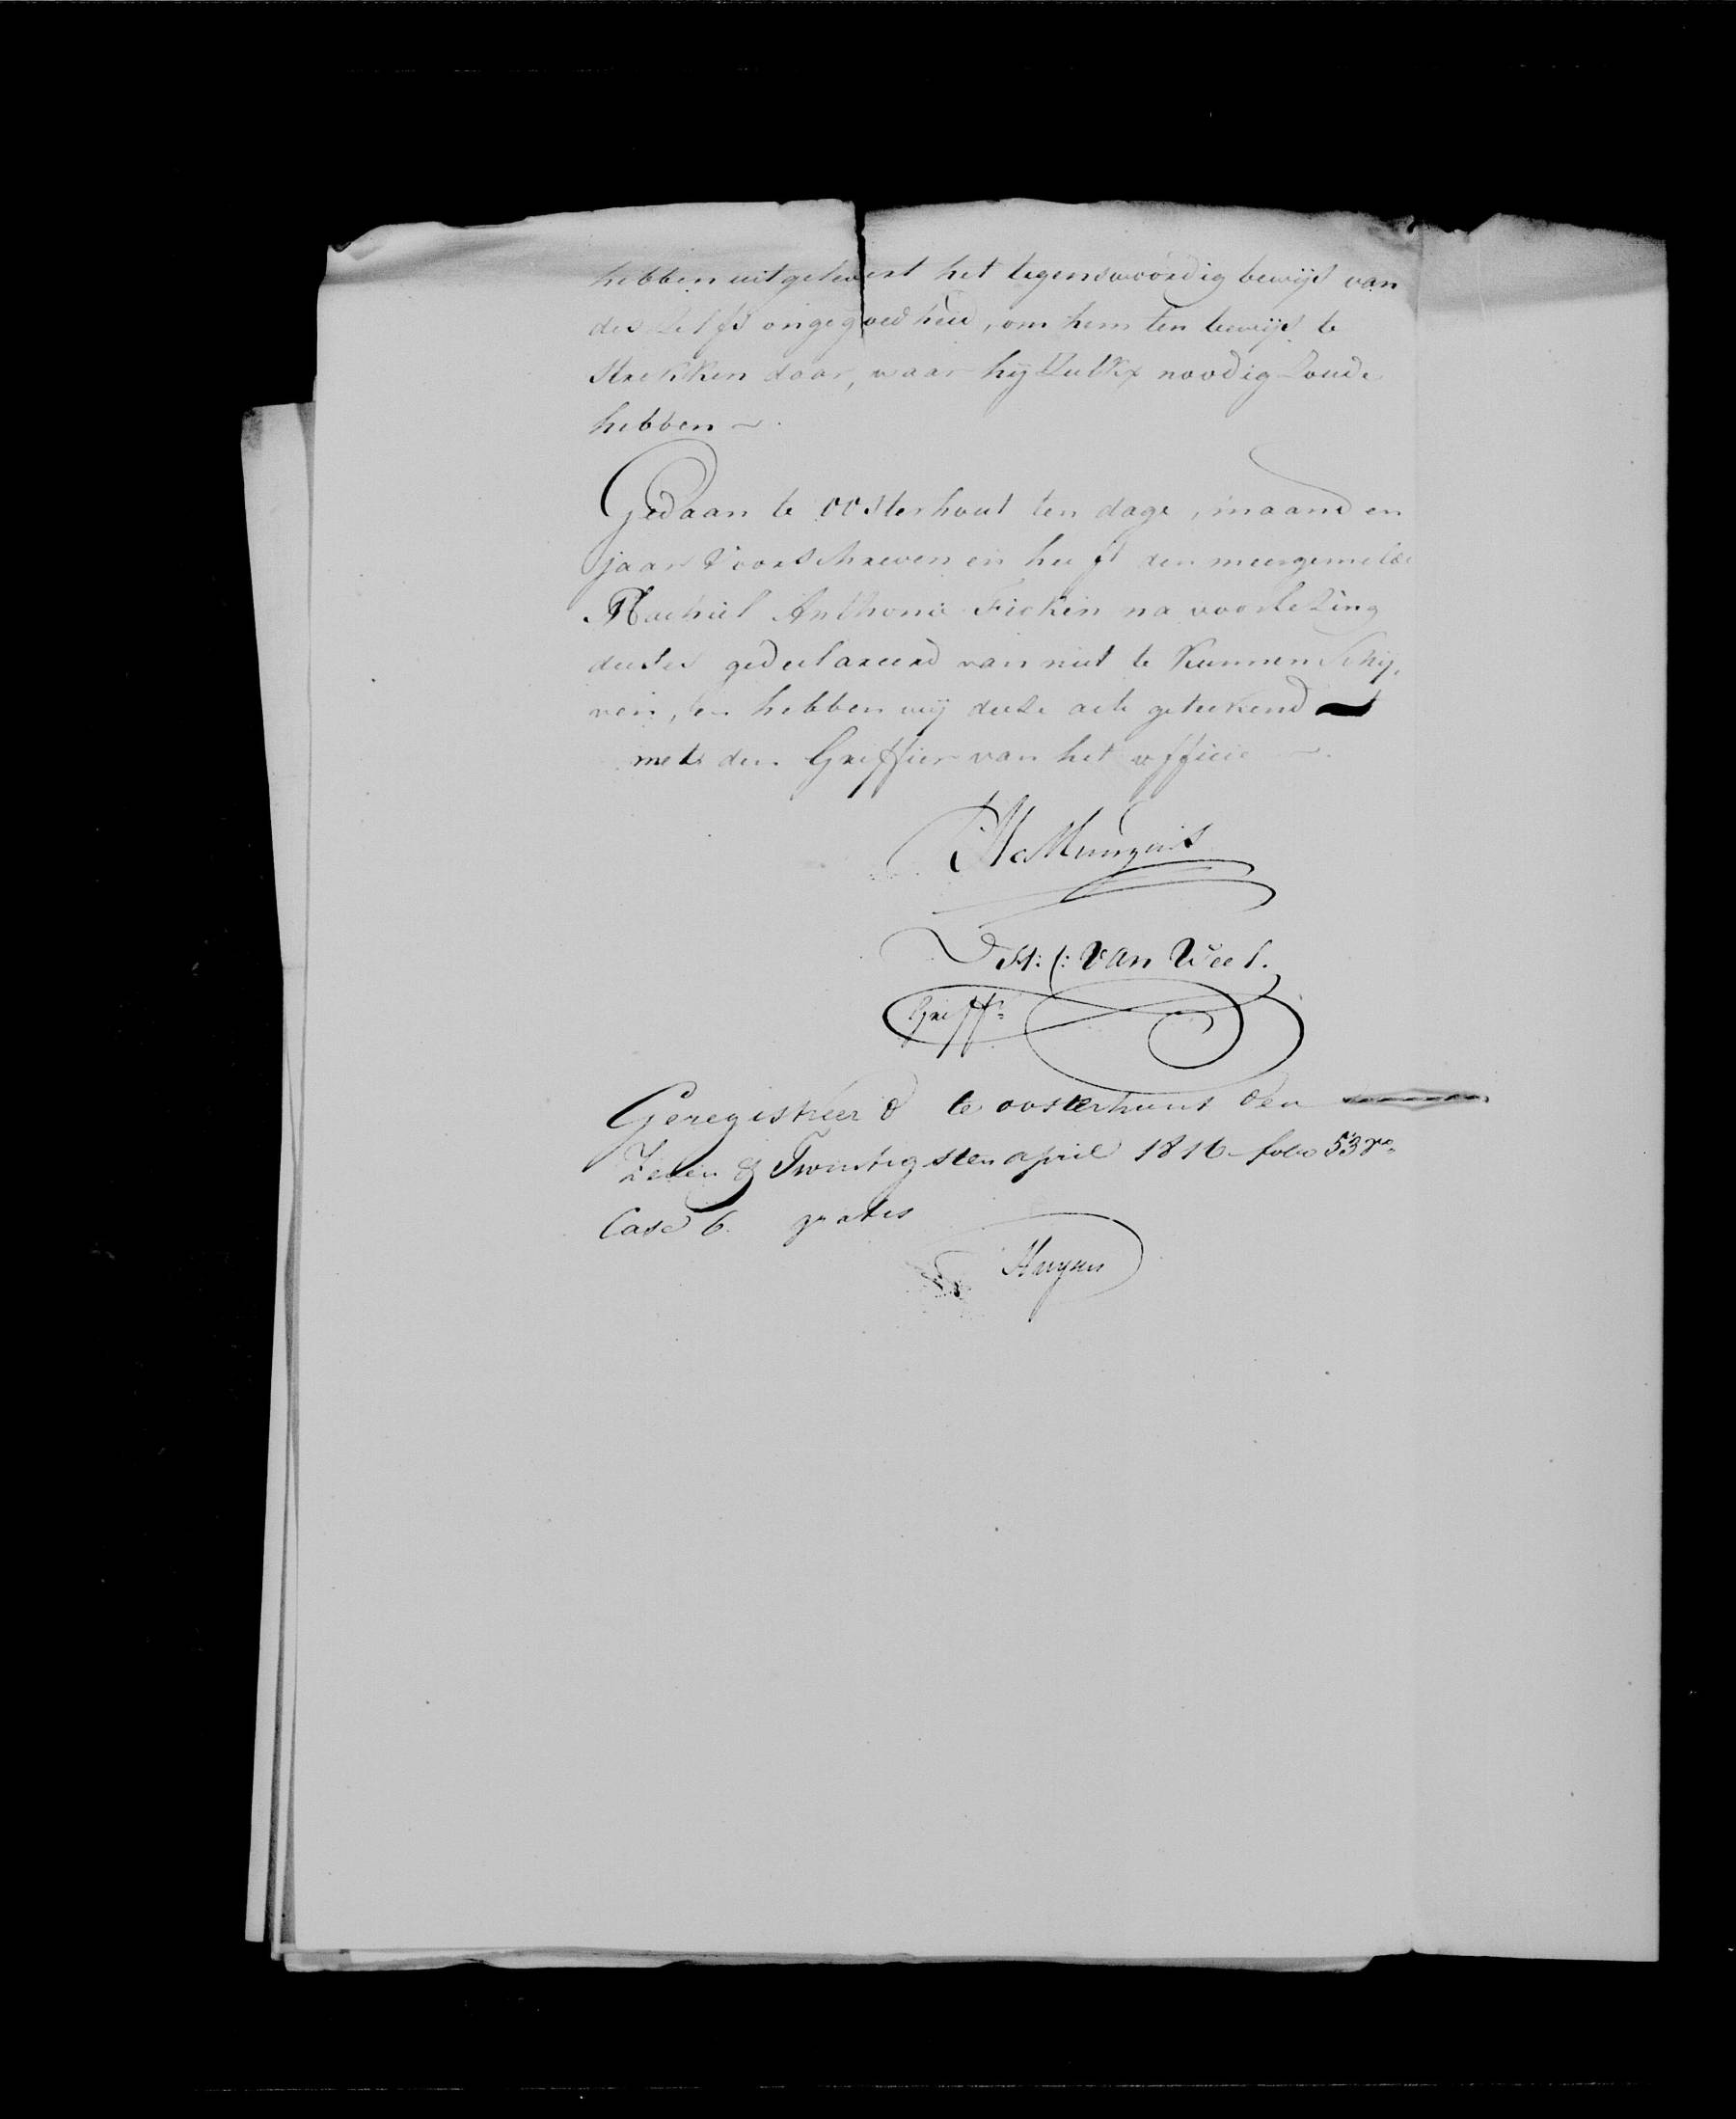 hebben uitgelevert het tegenswoordig bewijs van
deszelfs ongegoedheid, om hem ten bewijs te
strekken daar, waar hij zulks noodig zoude
hebben ~.
Gedaan te Oosterhout ten dage, maand en
jaar voorschreven en heeft den meergemelde
Machiel Anthonie na voorlezing
dezes gedeclareerd van niet te kunnen schrij,
ven, en hebben wij deeze acte getekend
met den Griffier van het officie ~.
van
Griffr.
Geregistreerd te oosterhout den
zeven & Twintigsten april 1816 folio 53 ro
Case 6. gratis
Huysers